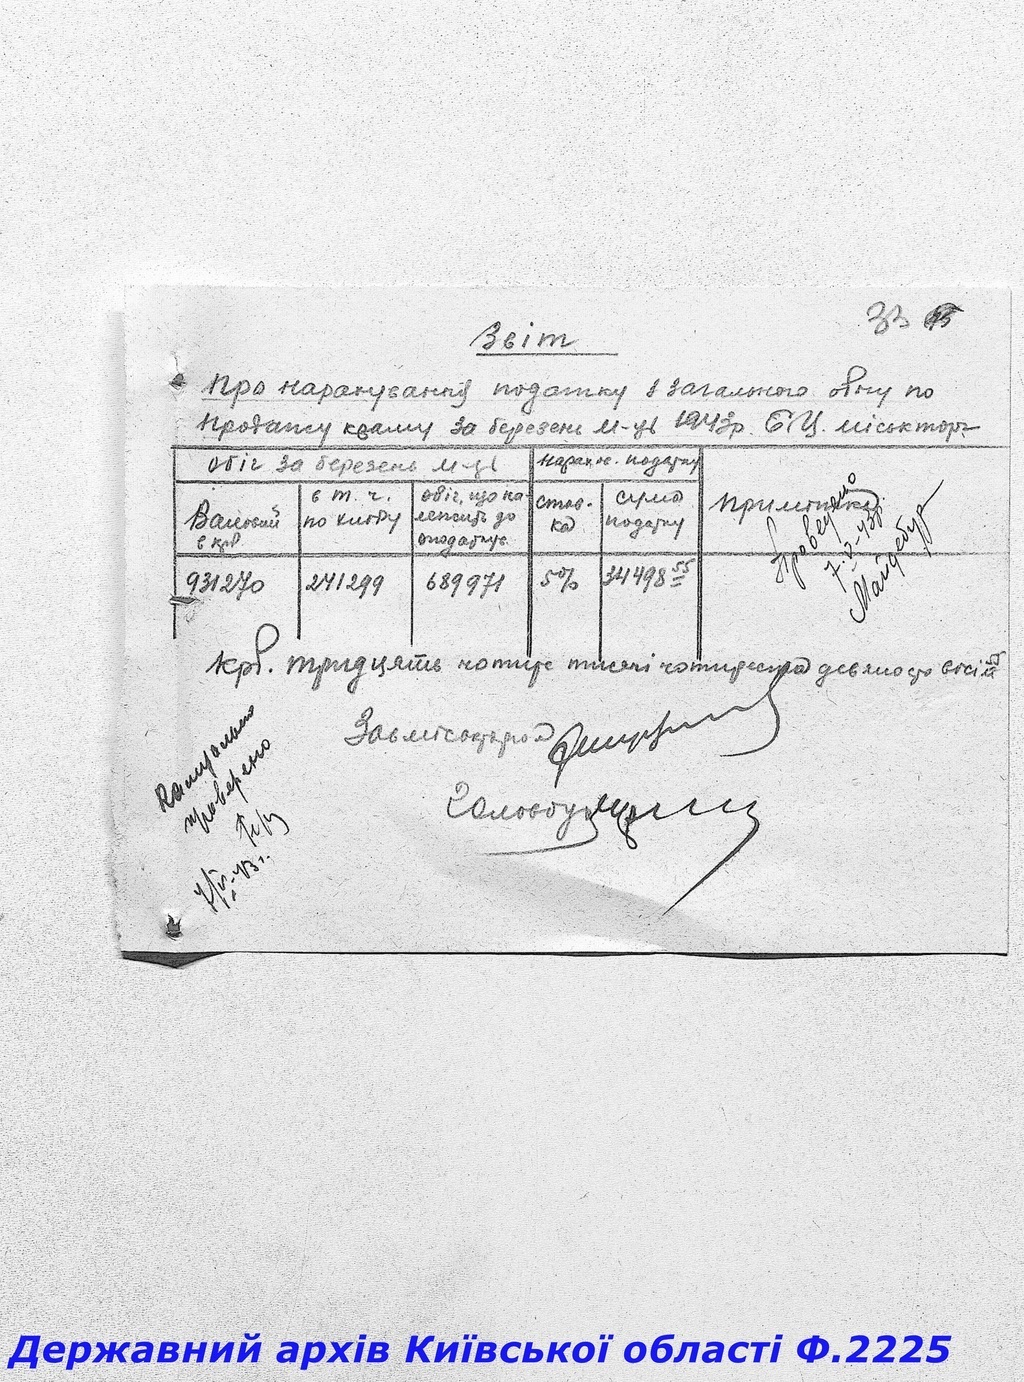 33
Звіт
Про нарахування податку з загального обігу по
продажу краму за березень м-ць 1943р. Б.Ц. міськторг
обіг за березень м-ць
Нарахов. податку
Примітка
Валовий
в крб
в т. ч.
по хлібу
обіг, що на-
лежить до
оподаткув.
став-
ка
сума
податку
931270
241299
689971
5%
34498 55
Проверено
43р.
Майдебур
Крб. тридцять чотири тисячі чотириста девяносто вісім 55
Завміськторгом
Головбух
проверено
43 г.
Державний архів Київської області Ф.2225